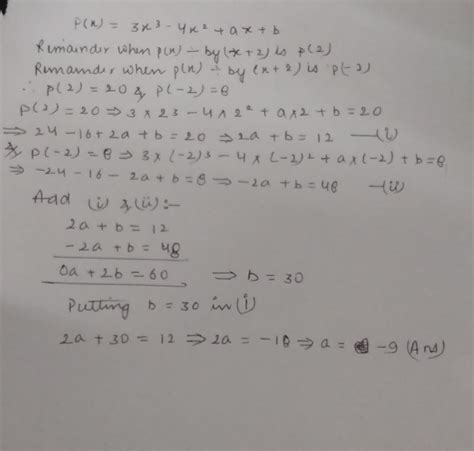 P(x) = 3x³ - 4x² + ax + b
Remainder when p(x) ÷ by (x+2) is p(2)
Remainder when p(x) ÷ by (x+2) is p(-2)
∴ p(2) = 20 & p(-2) = 8
p(2) = 20 ⇒ 3 × 23 - 4 × 2² + a × 2 + b = 20
⇒ 24 - 16 + 2a + b = 20 ⇒ 2a + b = 12 —(i)
& p(-2) = 8 ⇒ 3 × (-2)³ - 4 × (-2)² + a × (-2) + b = 8
⇒ -24 - 16 - 2a + b = 8 ⇒ -2a + b = 48 —(ii)
Add (i) & (ii) :-
2a + b = 12
-2a + b = 48
0a + 2b = 60 ⇒ b = 30
Putting b = 30 in (i)
2a + 30 = 12 ⇒ 2a = -18 ⇒ a = -9 (Ans)